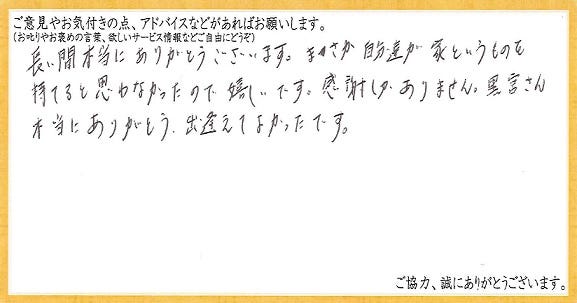 ご意見やお気付きの点、アドバイスなどがあればお願いします。
(お叱りやお褒めの言葉、欲しいサービス情報などご自由にどうぞ)
長い間本当にありがとうございます。まさか自分達が家というものを
持てると思わなかったので嬉しいです。感謝しかありません。黒宮さん
本当にありがとう、出逢えてよかったです。
ご協力、誠にありがとうございます。